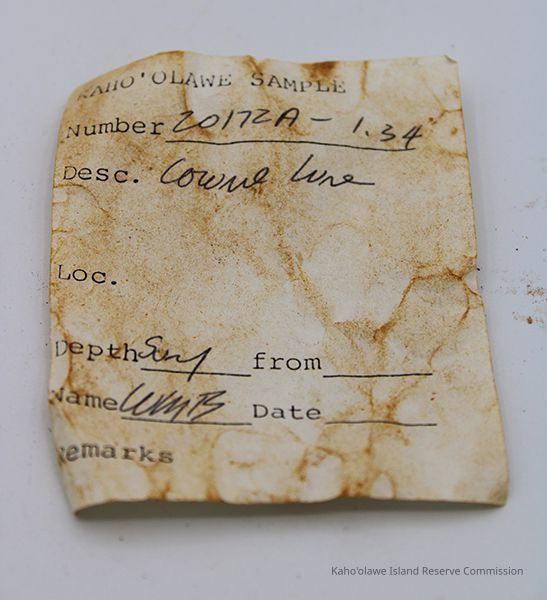 KAHO'OLAWE SAMPLE
Number 20172A - 1.34
Desc. Cowrie lure
Loc.
Depth Surf from
Name WMB Date
Remarks
Kaho'olawe Island Reserve Commission